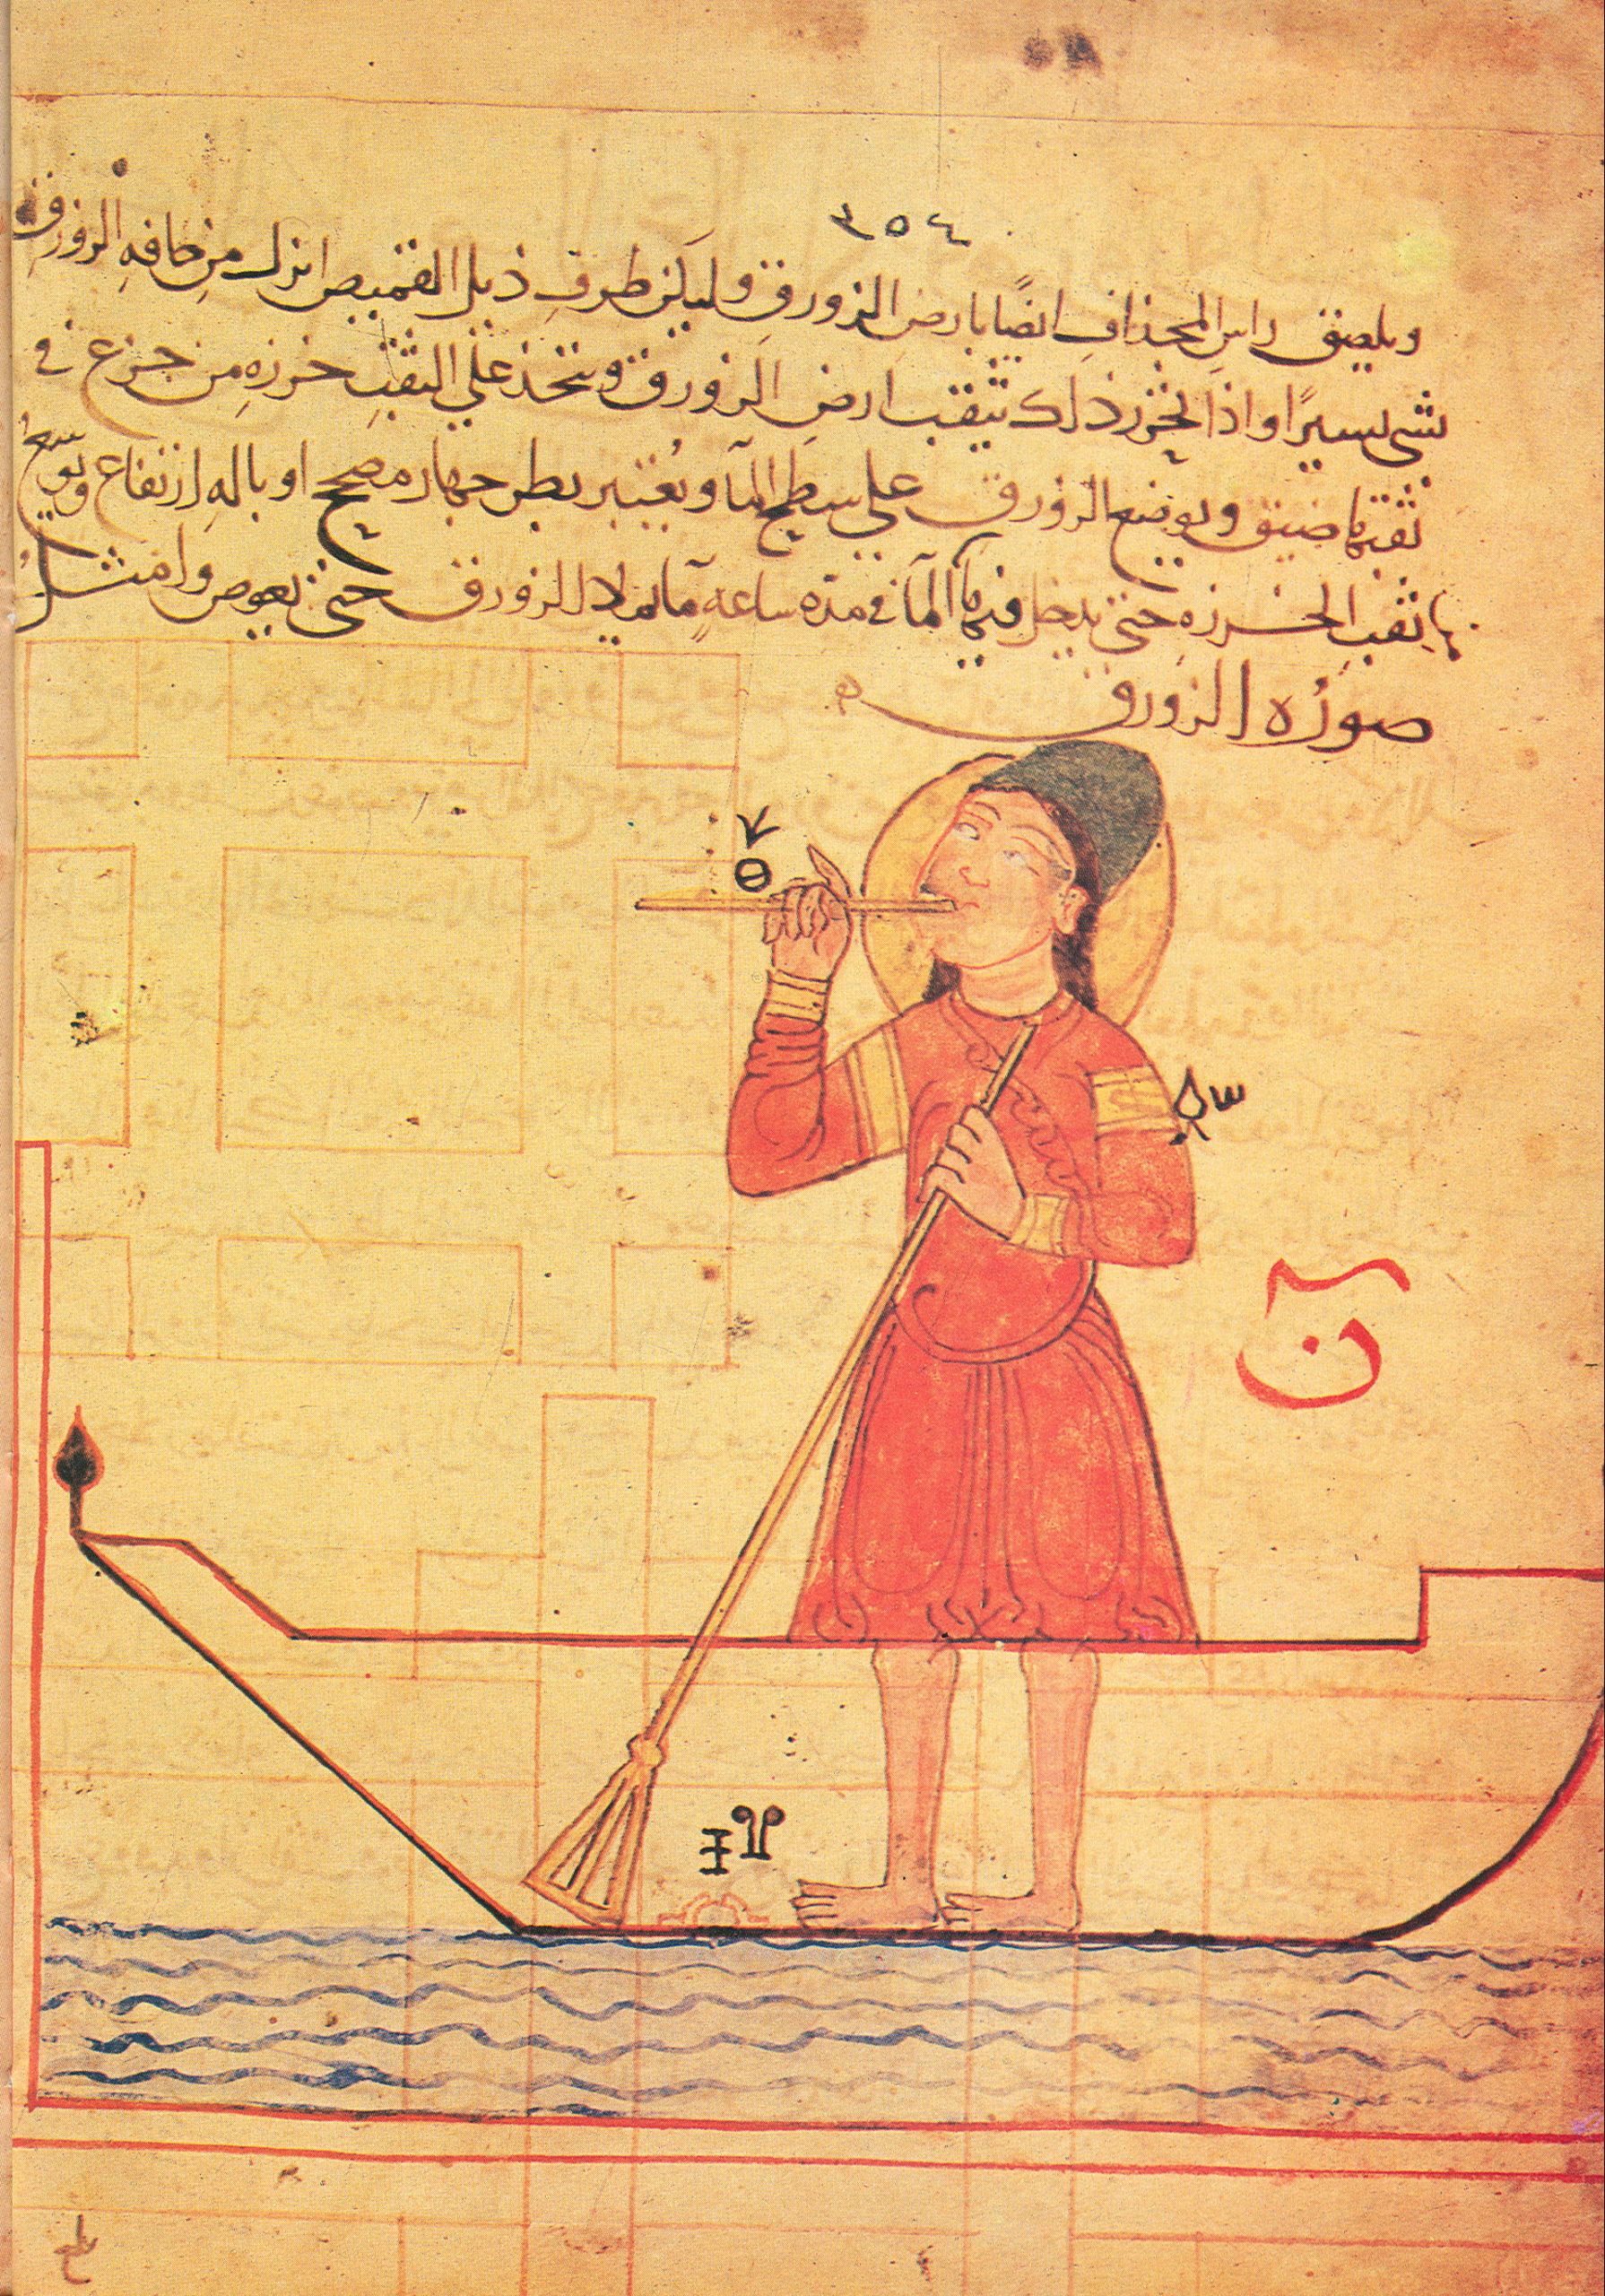 ٣٥٤
ويلصق راس المجذاف ايضًا بارض الزورق وليكن طرف ذيل القميص انزل من حافه الزورق
شي يسيرًا واذا نجز ذلك تثقب ارض الزورق ويتخذ على الثقب خرزه من جزع في
ثقبها ضيق ويوضع الزورق على سطح المآ ويعتبر بطرجهار مصحح او باله ارتفاع ويوسع
ثقب الخرزه حتى يدخل فيها المآ في مده ساعه مآ يملا الزورق حتى يغوص وامثل
صوره الزورق
ن